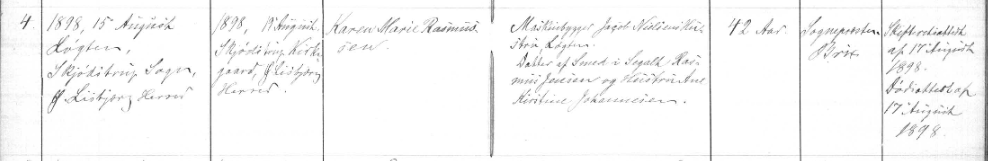 4.
1898, 15 August
Løgten,
Skjödstrup Sogn,
Ø Lisbjerg Herred
1898, 19 August
Skjödstrup Kirke-
gaard, Ø Lisbjerg
Herred.
Karen Marie Rasmus-
sen
Maskinbygger Jacob Nielsens Hu-
stru, Løgten.
Datter af Smed i Segalt Ras-
mus Jensen og Hustru Ane
Kirstine Johannesen.
42 Aar.
Sognepræsten
Brix
Skifteretsattest
af 17 August
1898.
Dödsattest af
17 August
1898.